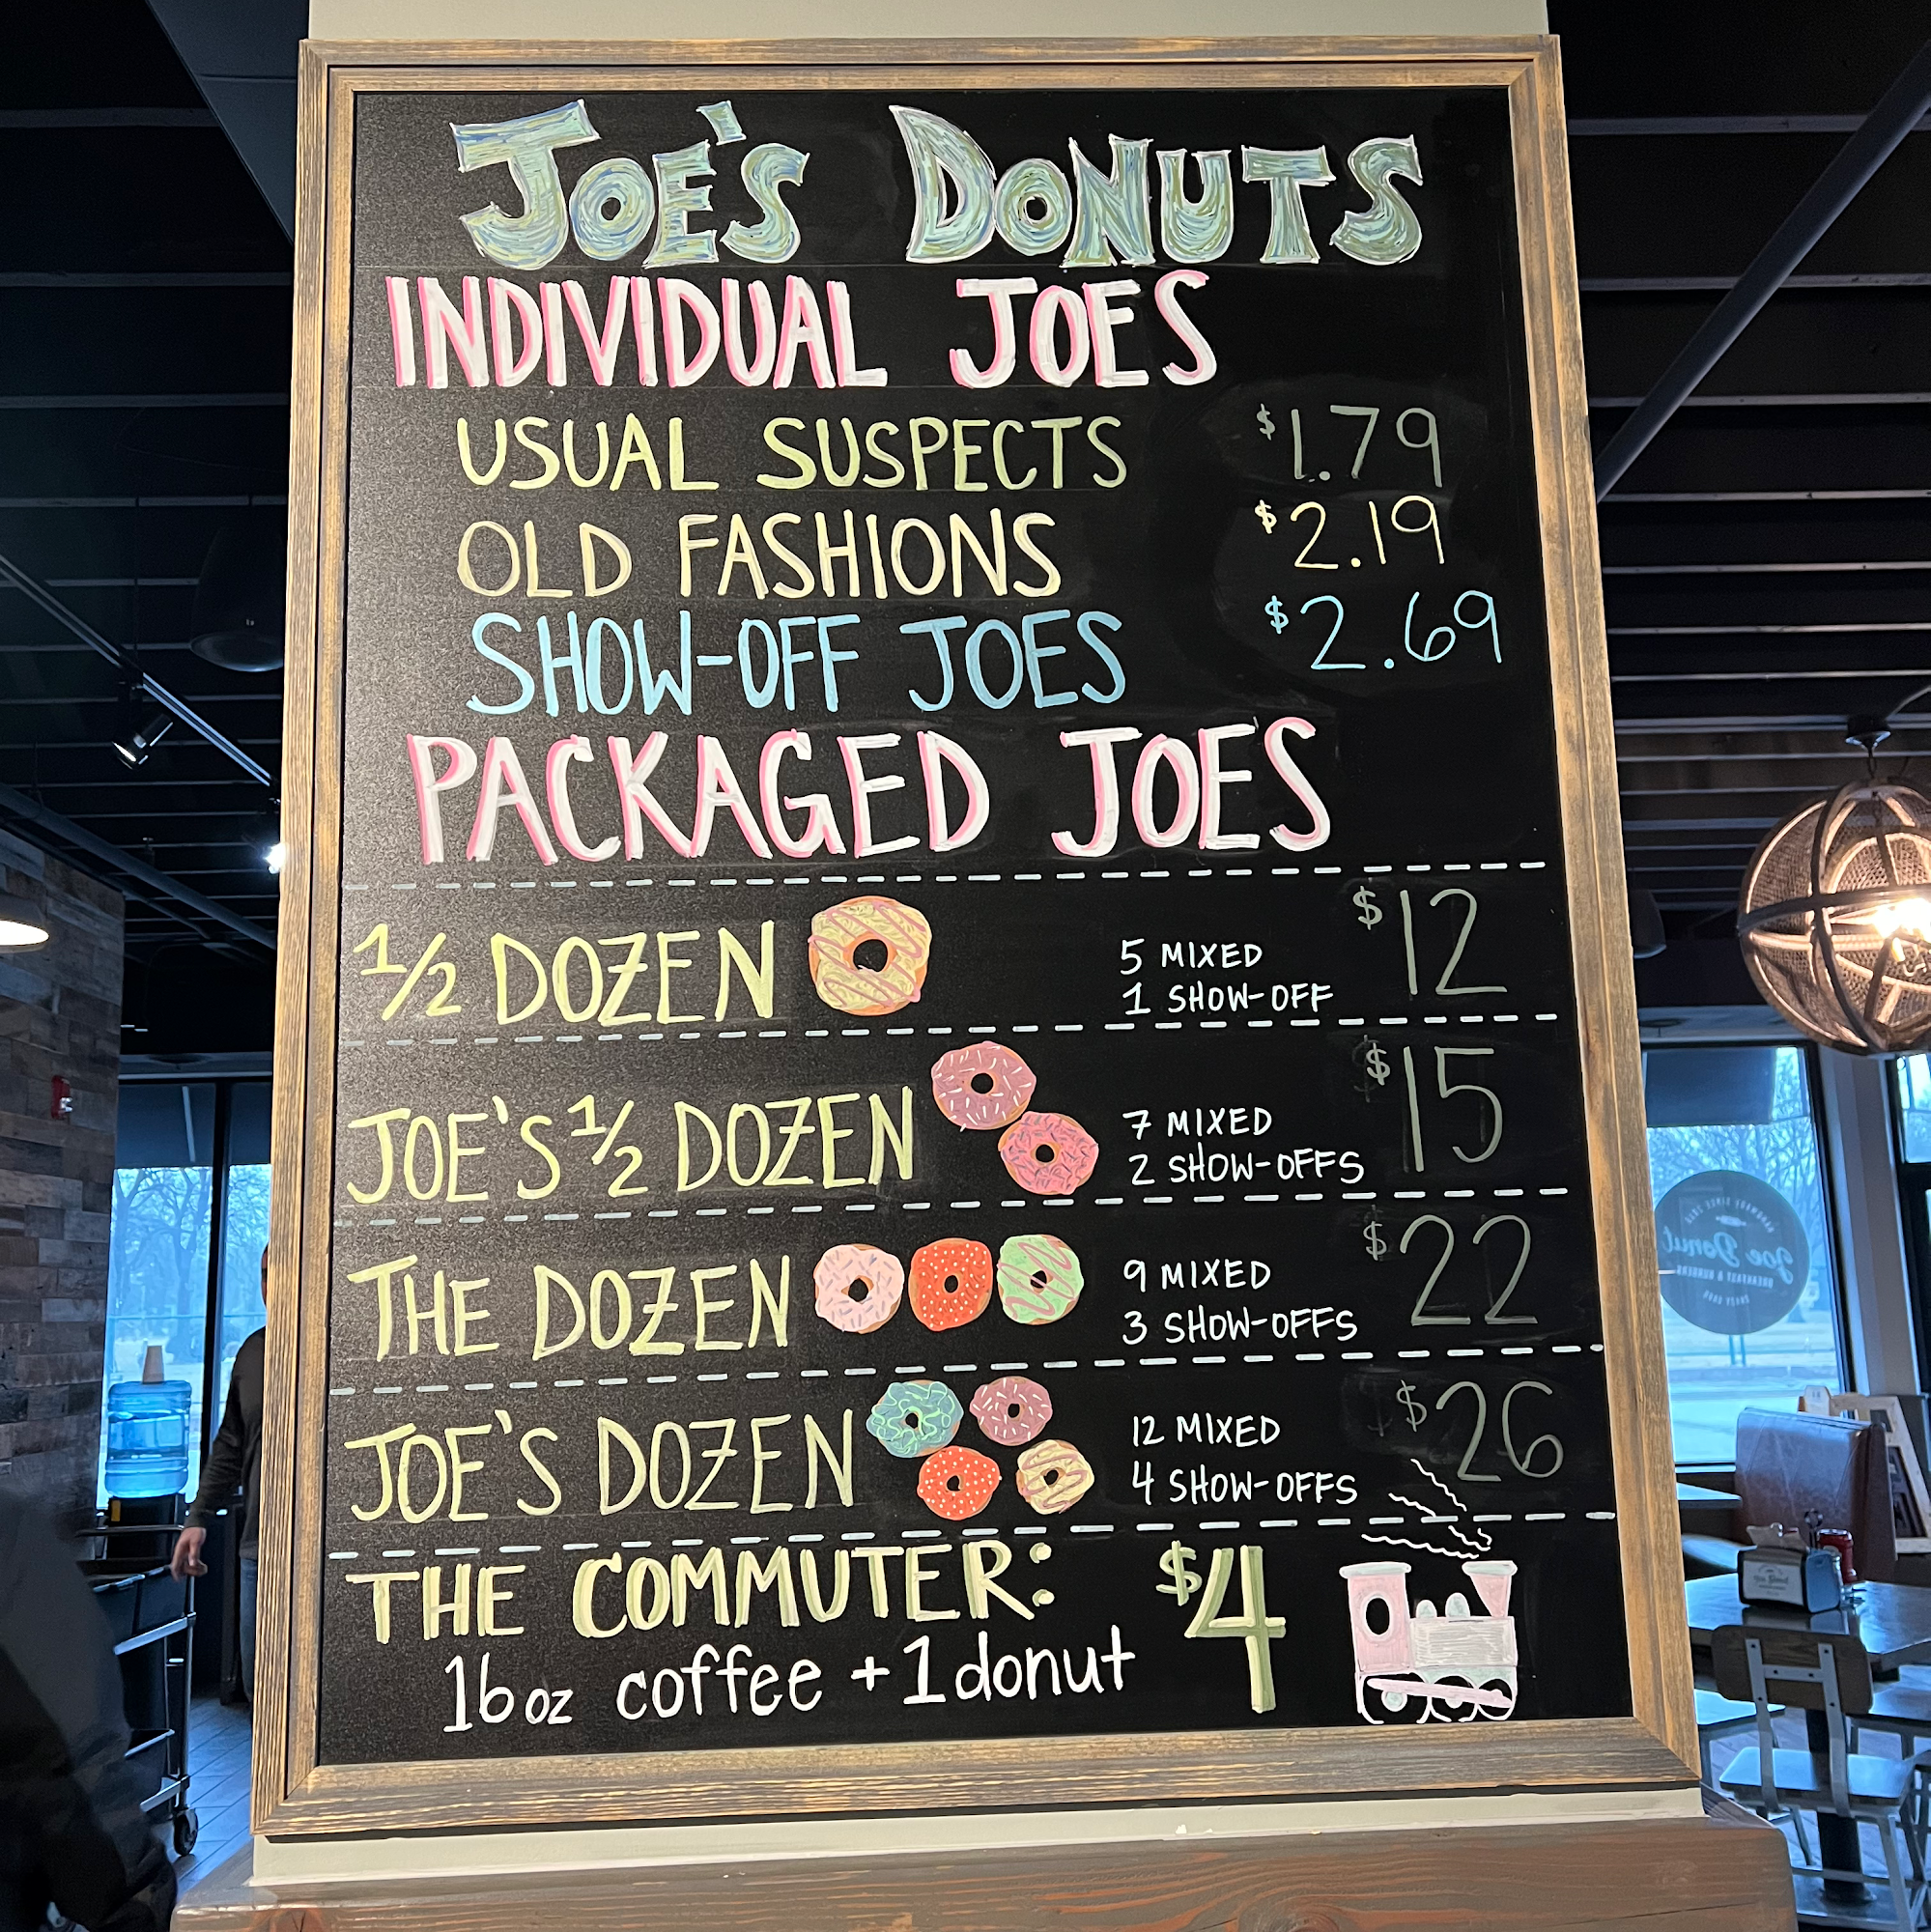 JOE'S DONUTS
INDIVIDUAL JOES
USUAL SUSPECTS $1.79
OLD FASHIONS $2.19
SHOW-OFF JOES $2.69
PACKAGED JOES
1/2 DOZEN 5 MIXED $12
1 SHOW-OFF
JOE'S 1/2 DOZEN 7 MIXED $15
2 SHOW-OFFS
THE DOZEN 9 MIXED $22
3 SHOW-OFFS
JOE'S DOZEN 12 MIXED $26
4 SHOW-OFFS
THE COMMUTER: $4
16oz coffee + 1 donut
Joe Donut
BREAKFAST & BURGERS